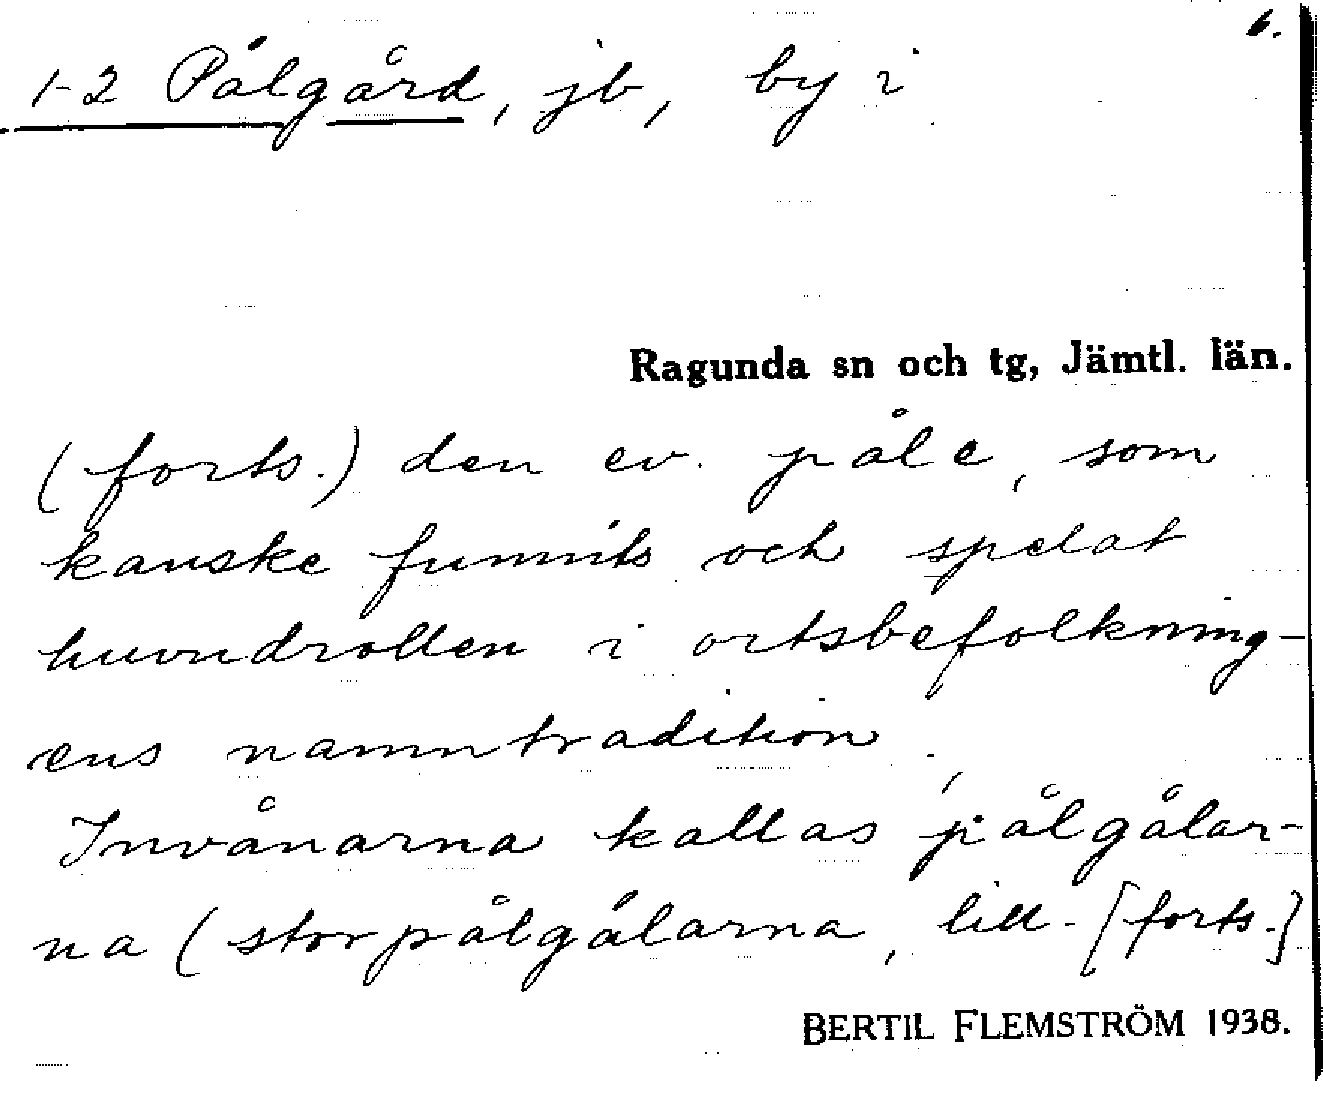 6.
1-2 Pålgård, jb, by i
Ragunda sn och tg, Jämtl. län.
(forts.) den ev. påle, som
kanske funnits och spelat
huvudrollen i ortsbefolkning-
ens namntradition.
Invånarna kallas pålgålar-
na (storpålgålarna, lill- [forts.]
BERTIL FLEMSTRÖM 1938.